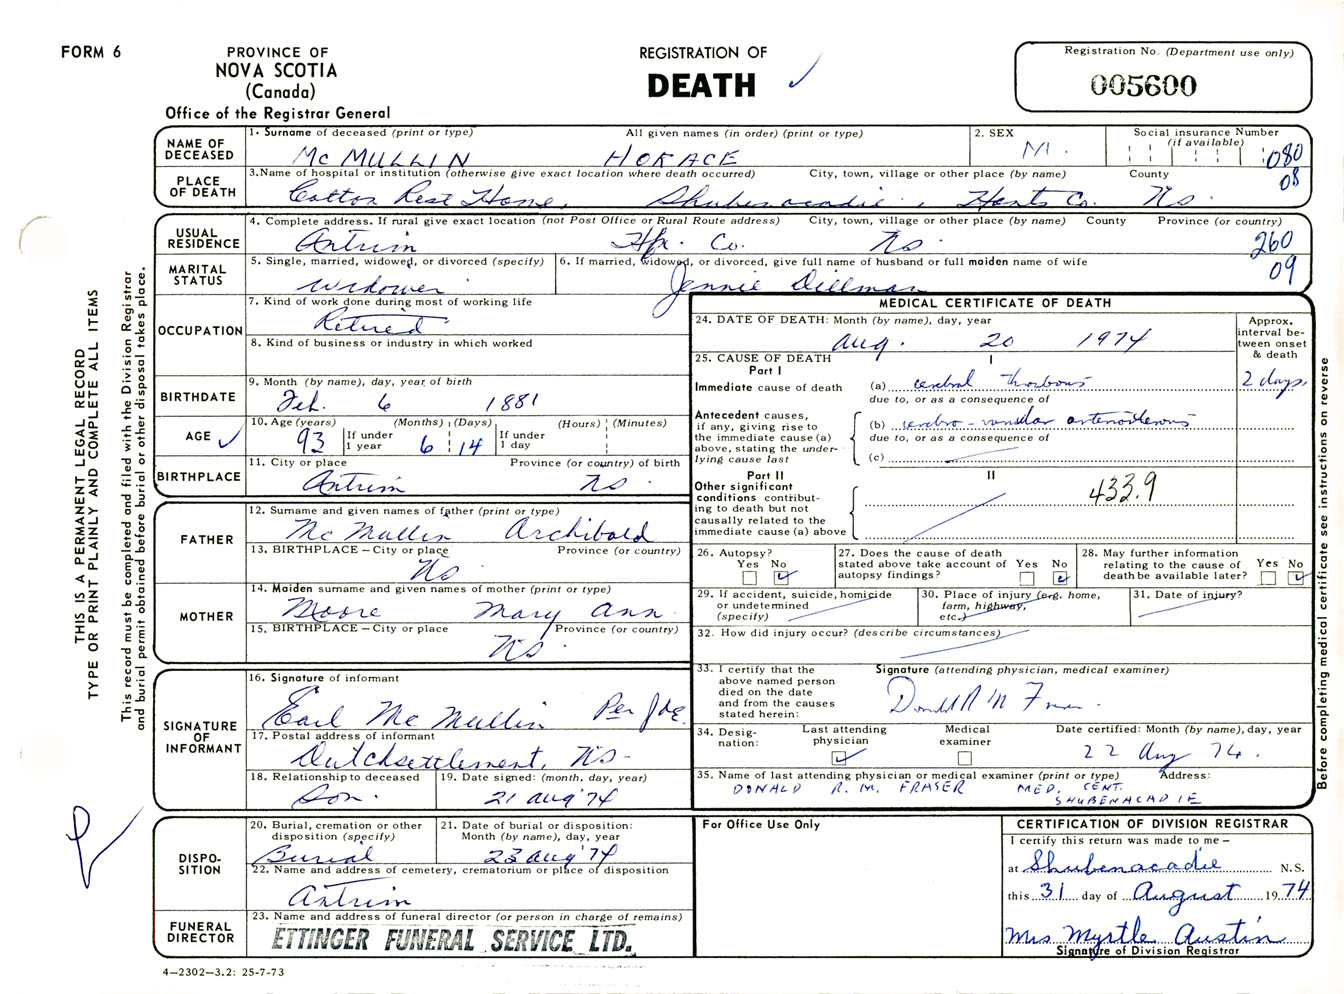 FORM 6
PROVINCE OF
NOVA SCOTIA
(Canada)
Office of the Registrar General
REGISTRATION OF
DEATH
Registration No. (Department use only)
005600
NAME OF DECEASED
1. Surname of deceased (print or type) All given names (in order) (print or type)
McMULLIN HORACE
2. SEX
M.
Social insurance Number (if available)
080
08
PLACE OF DEATH
3. Name of hospital or institution (otherwise give exact location where death occurred) City, town, village or other place (by name) County
Cotton Rest Home, Shubenacadie, Hants Co. NS.
USUAL RESIDENCE
4. Complete address. If rural give exact location (not Post Office or Rural Route address) City, town, village or other place (by name) County Province (or country)
Antrim Hfx. Co. NS.
260
09
MARITAL STATUS
5. Single, married, widowed, or divorced (specify)
widower
6. If married, widowed, or divorced, give full name of husband or full maiden name of wife
Jennie Dillman
OCCUPATION
7. Kind of work done during most of working life
Retired
8. Kind of business or industry in which worked
BIRTHDATE
9. Month (by name), day, year of birth
Feb. 6 1881
AGE
10. Age (years) (Months) (Days) (Hours) (Minutes)
93 If under 1 year 6 14 If under 1 day
BIRTHPLACE
11. City or place Province (or country) of birth
Antrim NS.
FATHER
12. Surname and given names of father (print or type)
McMullin Archibald
13. BIRTHPLACE – City or place Province (or country)
NS
MOTHER
14. Maiden surname and given names of mother (print or type)
Moore Mary Ann.
15. BIRTHPLACE – City or place Province (or country)
NS.
SIGNATURE OF INFORMANT
16. Signature of informant
Earl McMullin Per
17. Postal address of informant
Dutchsettlement, NS-
18. Relationship to deceased
Son.
19. Date signed: (month, day, year)
21 Aug '74
DISPOSITION
20. Burial, cremation or other disposition (specify)
Burial
21. Date of burial or disposition: Month (by name), day, year
23 Aug '74
22. Name and address of cemetery, crematorium or place of disposition
Antrim
FUNERAL DIRECTOR
23. Name and address of funeral director (or person in charge of remains)
ETTINGER FUNERAL SERVICE LTD.
4–2302–3.2: 25-7-73
MEDICAL CERTIFICATE OF DEATH
24. DATE OF DEATH: Month (by name), day, year
Aug. 20 1974
Approx. interval between onset & death
25. CAUSE OF DEATH
Part I
I
Immediate cause of death
(a) cerebral thrombosis 2 days
due to, or as a consequence of
Antecedent causes, if any, giving rise to the immediate cause (a) above, stating the underlying cause last
(b) cerebro-vascular arteriosclerosis
due to, or as a consequence of
(c)
Part II
II
Other significant conditions contributing to death but not causally related to the immediate cause (a) above
433.9
26. Autopsy? Yes No
27. Does the cause of death stated above take account of autopsy findings? Yes No
28. May further information relating to the cause of death be available later? Yes No
29. If accident, suicide, homicide or undetermined (specify)
30. Place of injury (e.g. home, farm, highway, etc.)
31. Date of injury?
32. How did injury occur? (describe circumstances)
33. I certify that the above named person died on the date and from the causes stated herein:
Signature (attending physician, medical examiner)
Donald R M Fraser
34. Designation: Last attending physician Medical examiner
Date certified: Month (by name), day, year
22 Aug 74.
35. Name of last attending physician or medical examiner (print or type) Address:
DONALD R.M. FRASER MED. CENT.
SHUBENACADIE
For Office Use Only
CERTIFICATION OF DIVISION REGISTRAR
I certify this return was made to me –
at Shubenacadie N.S.
this 31 day of August 1974
Mrs Myrtle Austin
Signature of Division Registrar
THIS IS A PERMANENT LEGAL RECORD
TYPE OR PRINT PLAINLY AND COMPLETE ALL ITEMS
This record must be completed and filed with the Division Registrar
and burial permit obtained before burial or other disposal takes place.
Before completing medical certificate see instructions on reverse